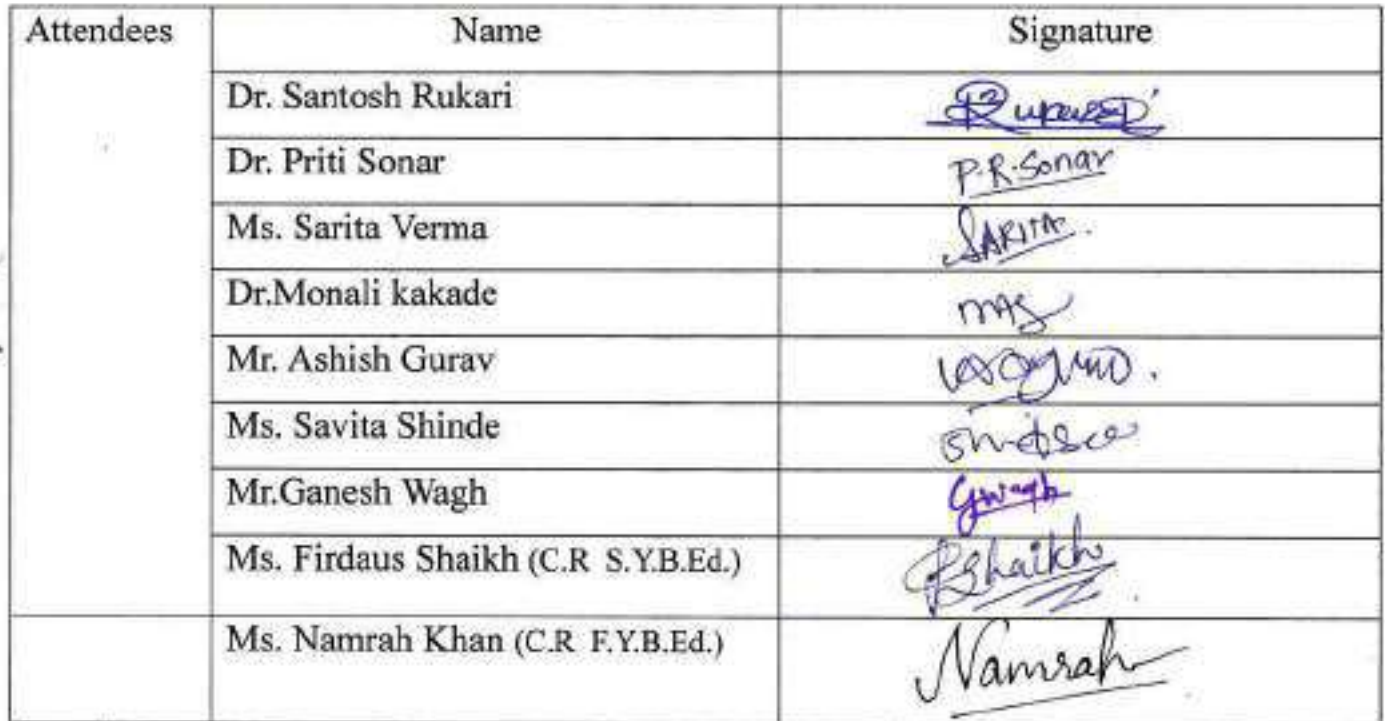 Attendees Name Signature
Dr. Santosh Rukari
Dr. Priti Sonar P.R.Sonar
Ms. Sarita Verma SARITA.
Dr.Monali kakade
Mr. Ashish Gurav
Ms. Savita Shinde
Mr.Ganesh Wagh Gwagh
Ms. Firdaus Shaikh (C.R S.Y.B.Ed.) FShaikh
Ms. Namrah Khan (C.R F.Y.B.Ed.) Namrah